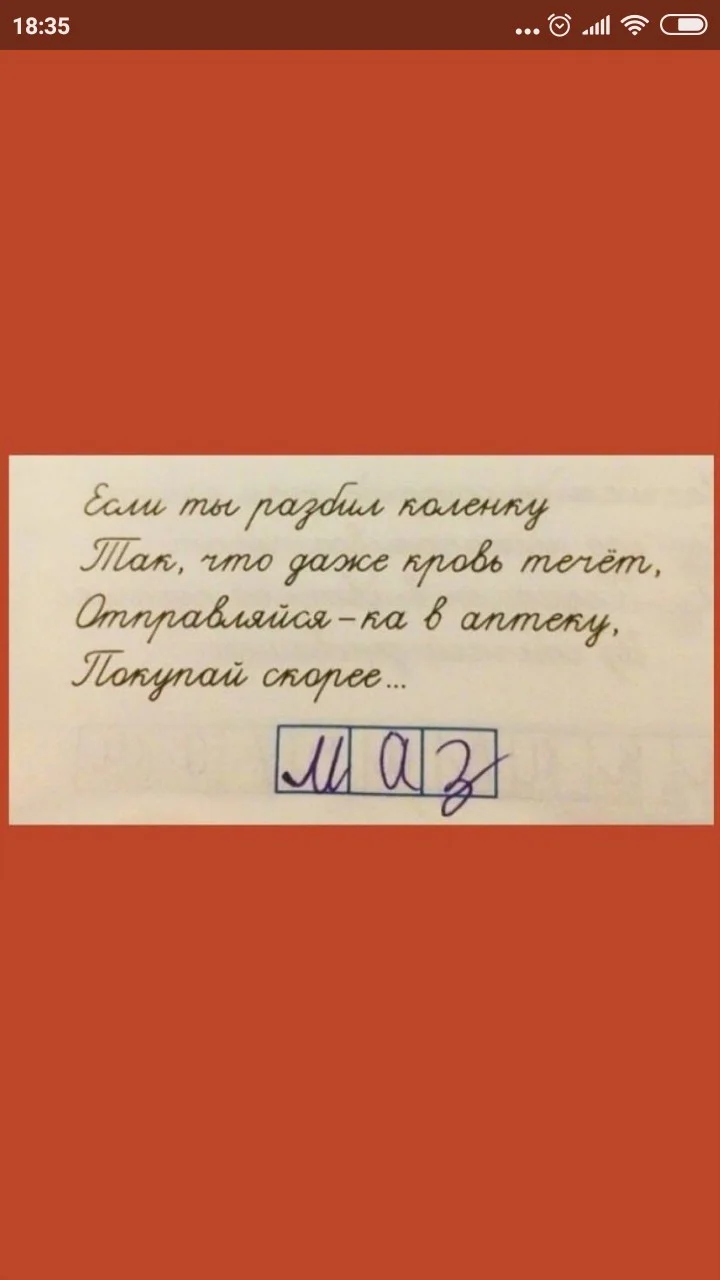 18:35
Если ты разбил коленку
Так, что даже кровь течёт,
Отправляйся-ка в аптеку,
Покупай скорее...
маз